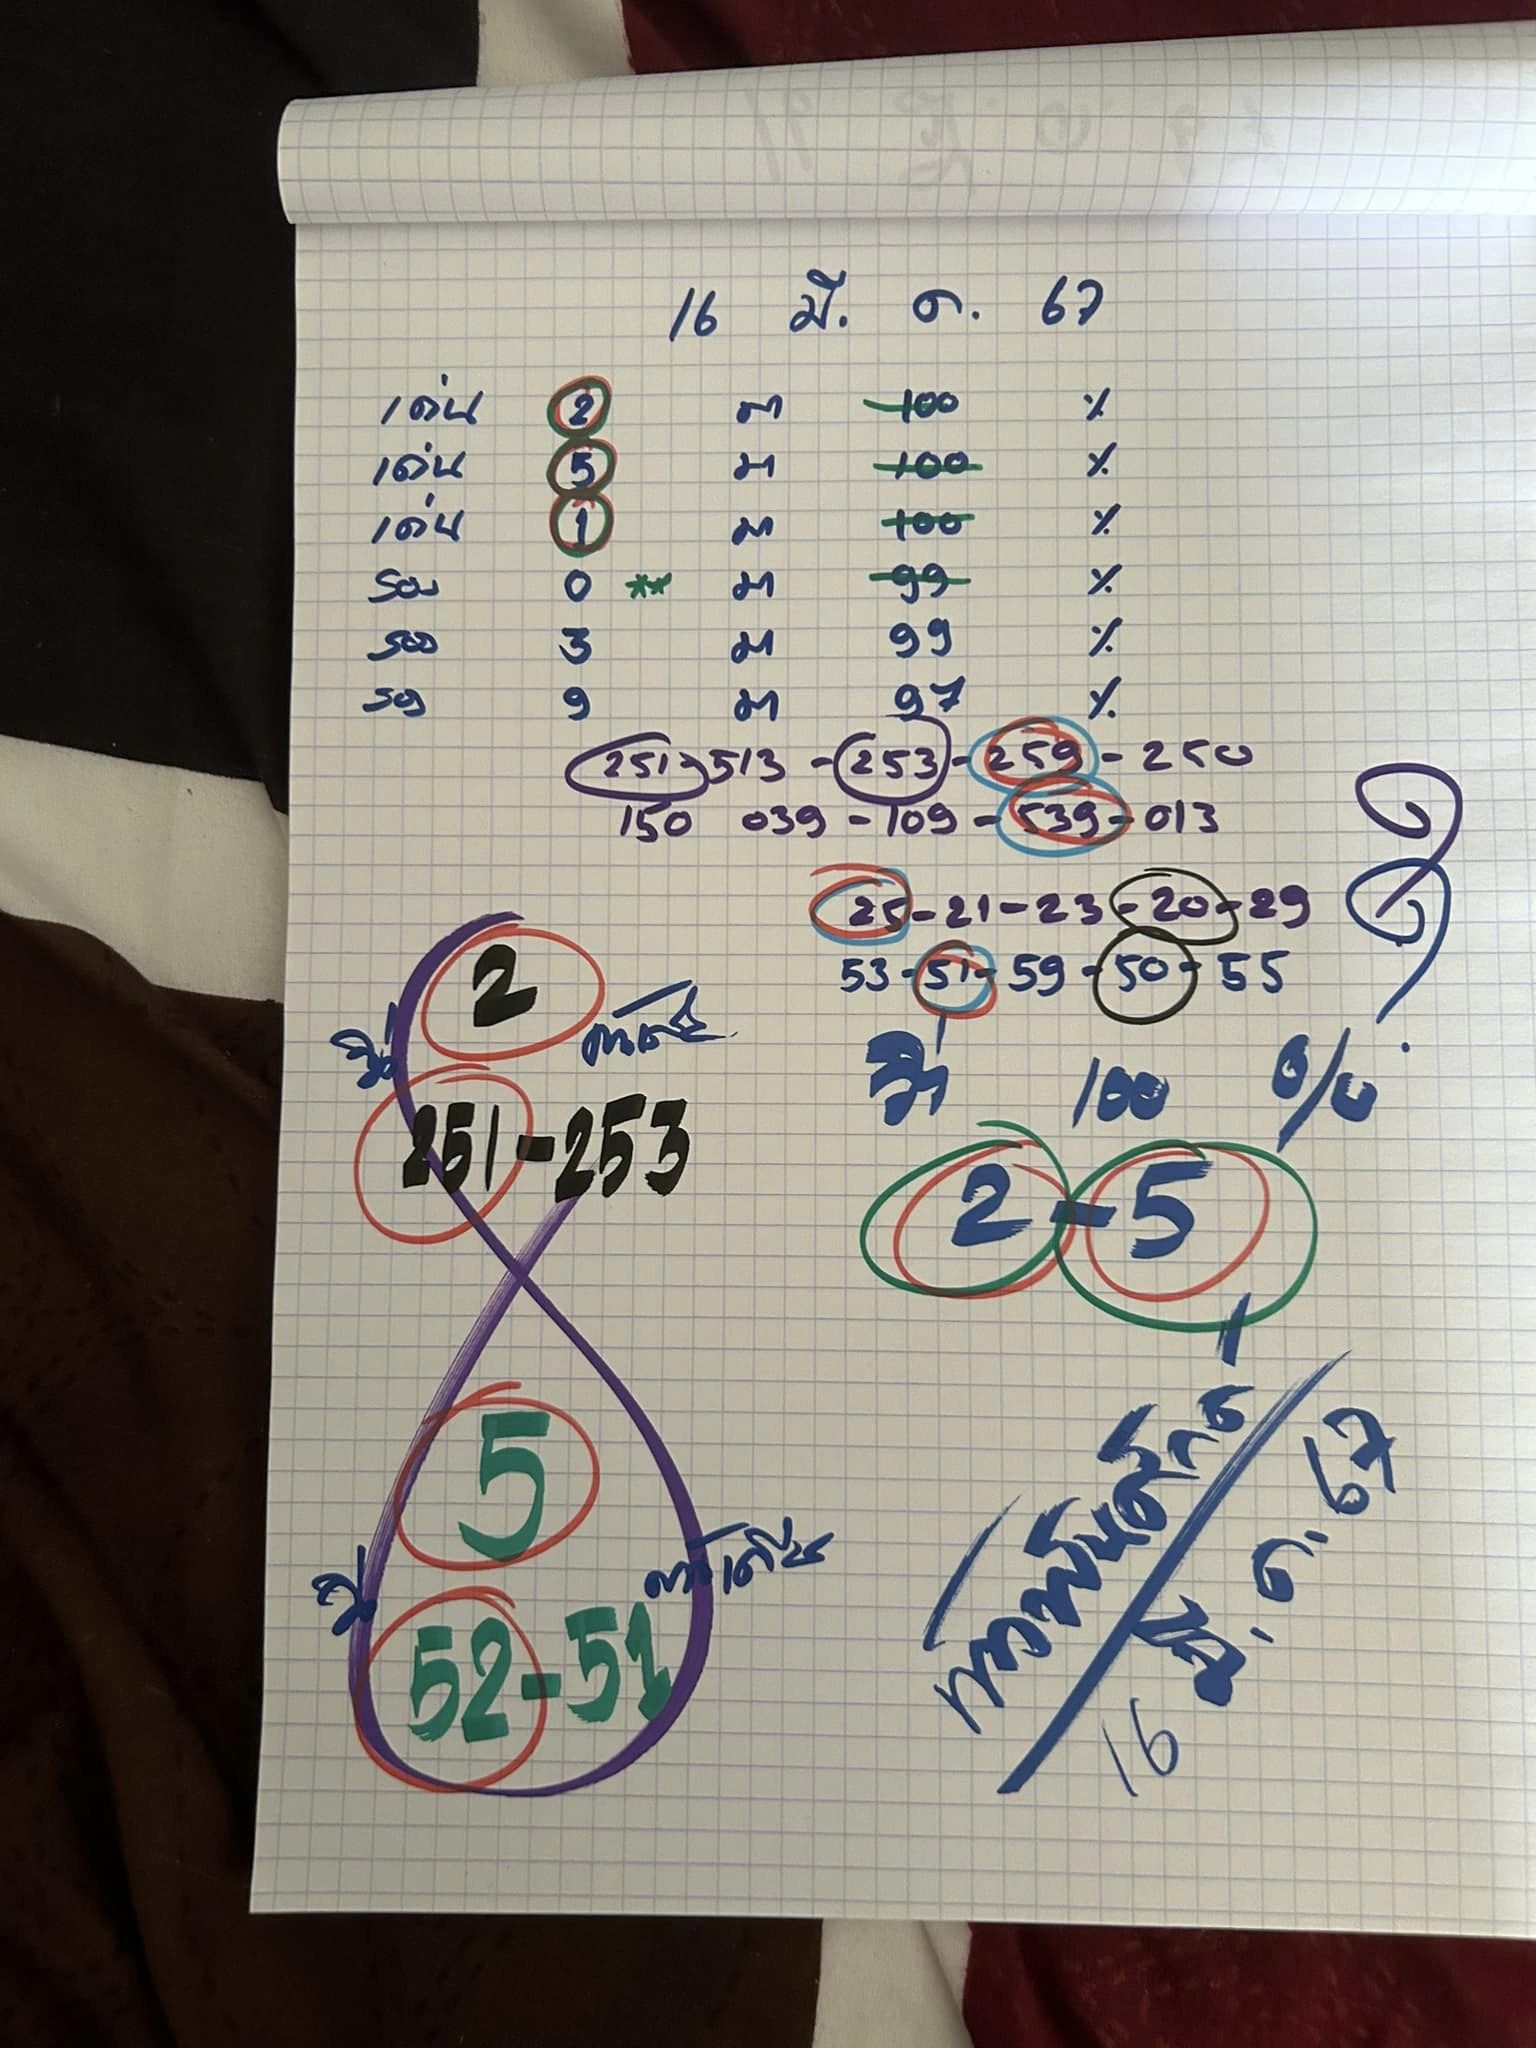 16 มี. ค. 67
เด่น 2 มา 100 %
เด่น 5 มา 100 %
เด่น 1 มา 100 %
รอง 0 ** มา 99 %
รอง 3 มา 99 %
รอง 9 มา 97 %
251-513-253-259-250
150 039-109-539-013
25-21-23-20-29
53-51-59-50-55
2
251-253
100 %
2-5
5
52-51
16 มี.ค. 67